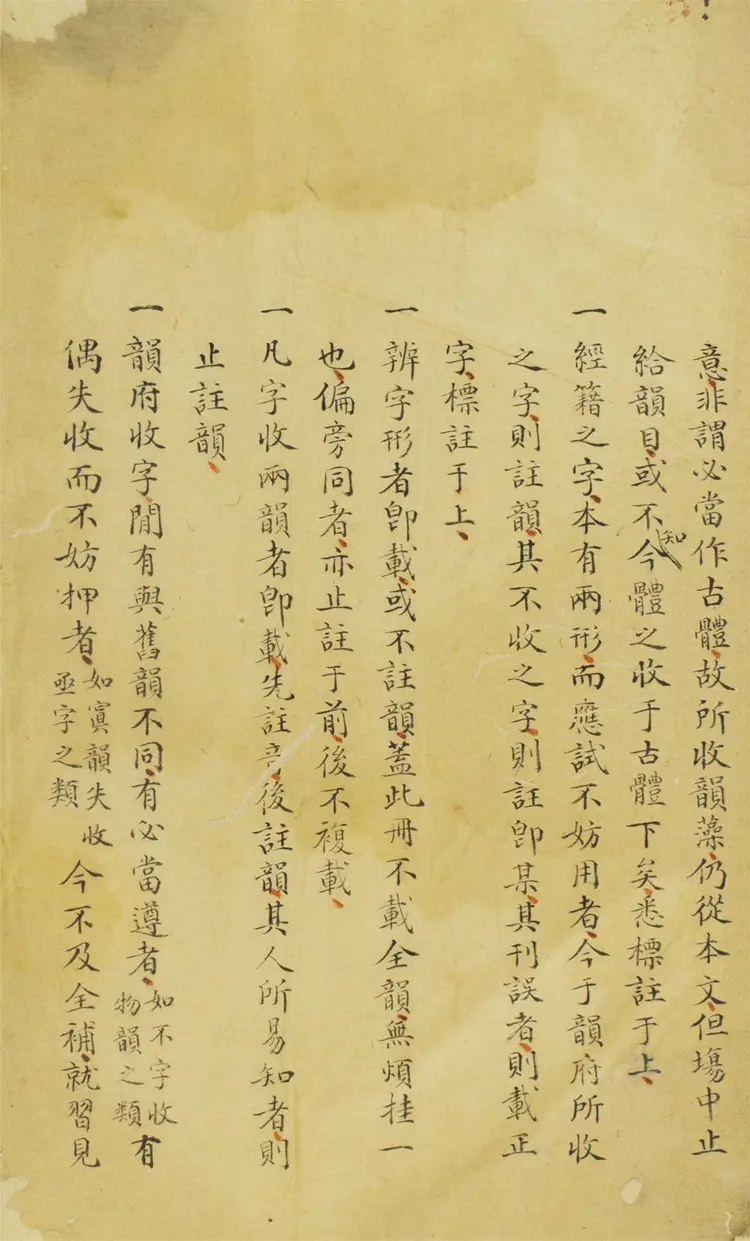 意非謂必當作古體故所收韻藻仍從本文但塲中止
給韻目或不知今體之收于古體下矣悉標註于上
一經籍之字本有兩形而應試不妨用者今于韻府所收
之字則註韻其不收之字則註卽某其刊誤者則載正
字標註于上
一辨字形者卽載或不註韻蓋此冊不載全韻無煩挂一
也偏旁同者亦止註于前後不複載
一凡字收兩韻者卽載先註音後註韻其人所易知者則
止註韻
一韻府收字閒有與舊韻不同有必當遵者如不字收物韻之類有
偶失收而不妨押者如寘韻失收亟字之類今不及全補就習見